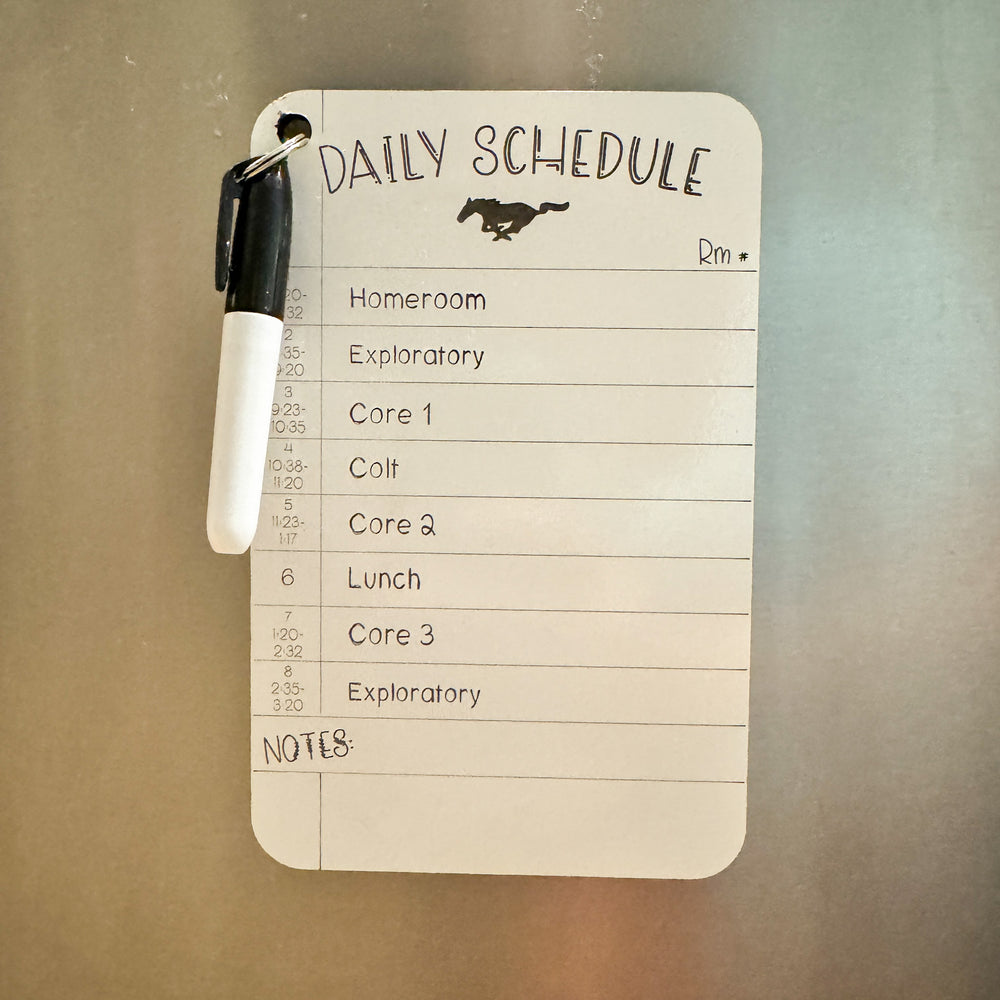 DAILY SCHEDULE
Rm #
20-
32
Homeroom
2
35-
20
Exploratory
3
9:23-
10:35
Core 1
4
10:38-
11:20
Colt
5
11:23-
1:17
Core 2
6
Lunch
7
1:20-
2:32
Core 3
8
2:35-
3:20
Exploratory
NOTES: